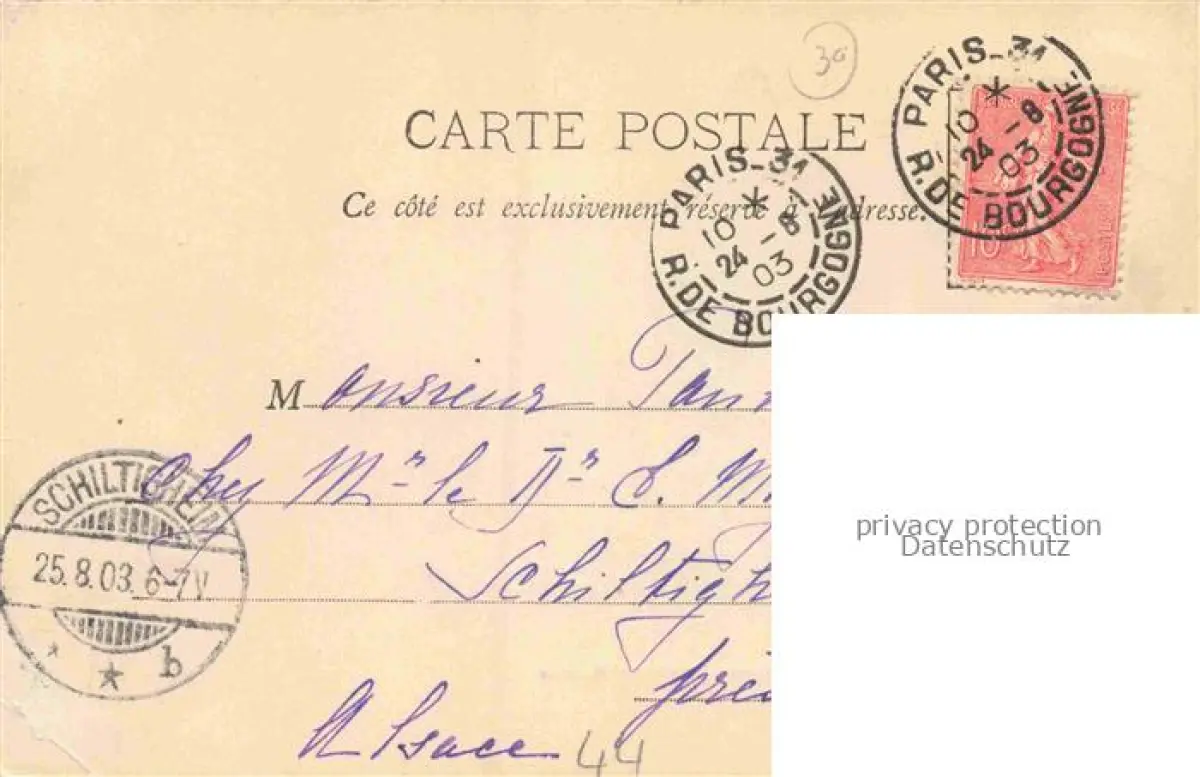 30
CARTE POSTALE
Ce côté est exclusivement réservé à l'adresse.
PARIS_31
10
24 - 8
03
R. DE BOURGOGNE
PARIS_31
10
24 - 8
03
R. DE BOURGOGNE
10
Monsieur
Chez Mr le Dr E. M
Schiltigh
SCHILTIGHEIM
25.8.03. 6-7V
* * b
Alsace
44
privacy protection
Datenschutz